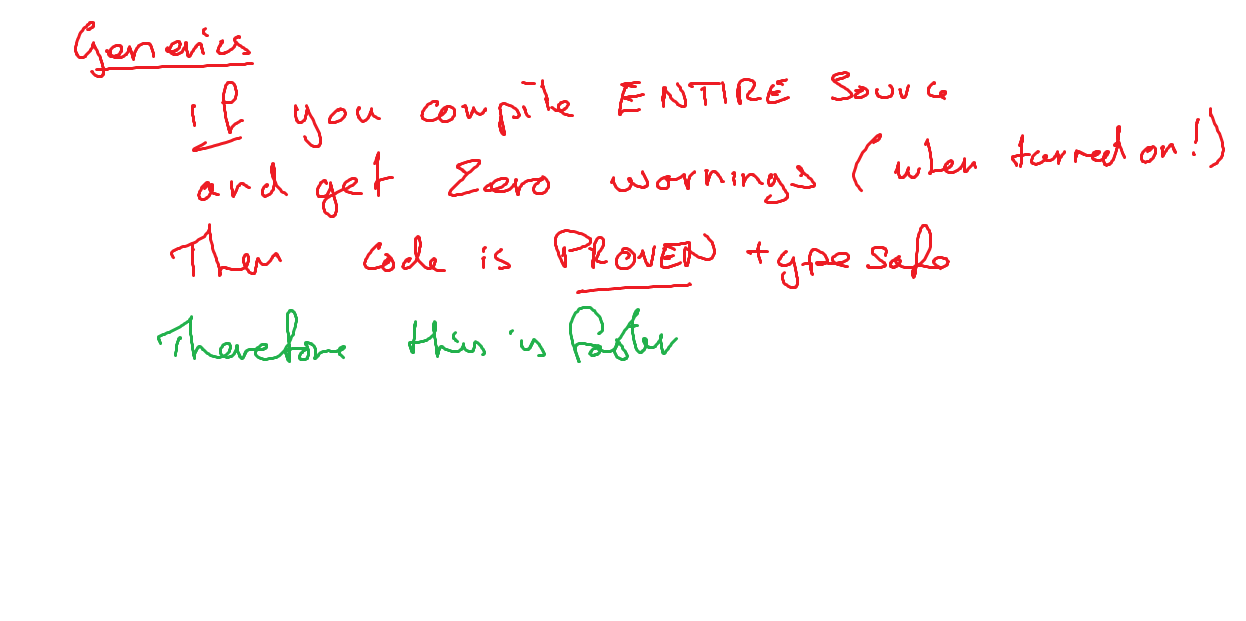 Generics
if you compile ENTIRE Source
and get Zero warnings (when turned on!)
Then code is PROVEN type safe
Therefore this is faster